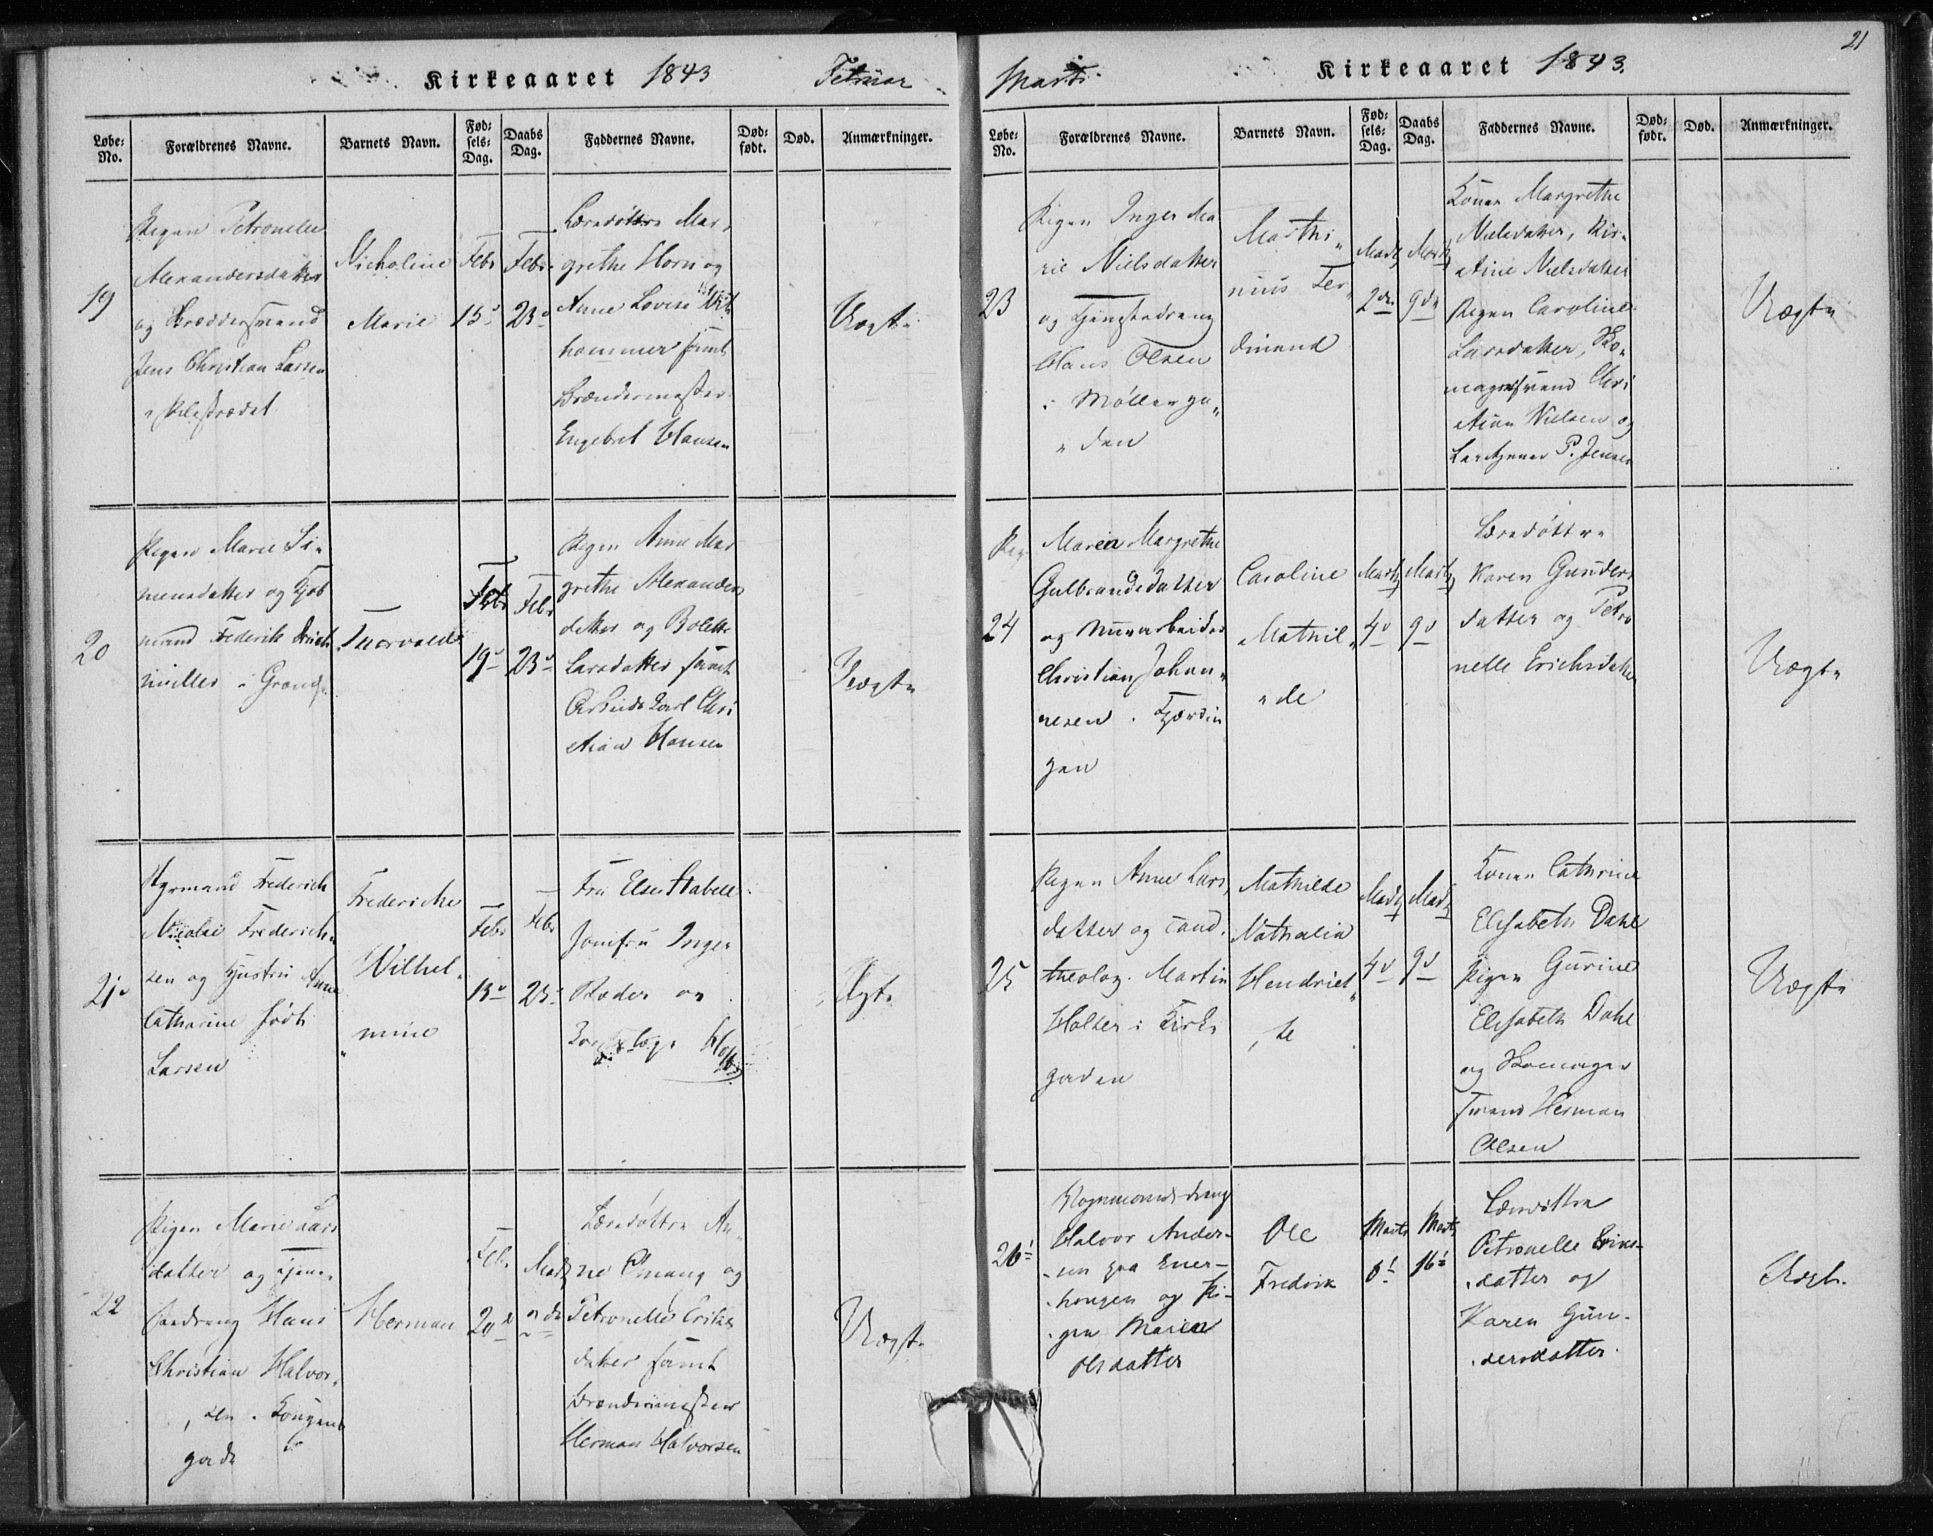 Kirkeaaret 1843 Februar
Løbe-No. Forældrenes Navne. Barnets Navn. Fød-sels-Dag. Daabs Dag. Faddernes Navne. Død-født. Død. Anmærkninger.
19
Pigen Petronelle
Alexandersdatter
og Bræddersvend
Jens Christian Larsen
i Pilestrædet
Nicholine
Marie
Febr
15
Febr
23
Læredøttre Mar,
grethe Horn og
Anne Lovise
hammer samt
Brændermester
Engebret Hansen
Uægte
20
Pigen Marie Si-
mensdatter og
mand Frederik
müller i
Thorvald
Febr
19
Febr
23
Pigen Anne Mar
grethe Alexanders
datter og Bolette
Larsdatter samt
Carl Chri
stian Hansen
Uægte
21
Styrmand Frederich
Nicolai Frederich
sen og Hustru Anne
Catharine født
Larsen
Frederiche
Wilhel
mine
Febr
Febr
Fru Elise Stabell
Jomfru Inger
Røder og
Uægte
22
Pigen Marie Lars
datter og Tjene,
stedreng Hans
Christian Halvor,
sen i Kongens
gade
Herman
Febr
20
Martz
2de
Læredøttre An
ne Omang og
Petronelle Eriks
datter samt
Brændermester
Herman Halvorsen
Uægte
21
Marts Kirkeaaret 1843.
Løbe-No. Forældrenes Navne. Barnets Navn. Fød-sels-Dag. Daabs Dag. Faddernes Navne. Død-født. Død. Anmærkninger.
23
Pigen Inger Ma
rie Nielsdatter
og Tjenestedreng
Hans Olsen
i Møllerga
den
Marthi
nius Fer
dinand
Martz
2de
Martz
9de
Konen Margrethe
Nielsdatter, Kir
stine Nielsdatter
Pigen Caroline
Larsdatter, Sko
magersvend Chri
stian Nielsen og
P. Jensen
Uægte
24
Pig
Maren Margrethe
Gulbrandsdatter
og Murarbeider
Christian Johan
nesen i Fjærdin
gen
Caroline
Mathil
de
Martz
4
Martz
9
Læredøttre
Karen Gunders
datter og Petro
nelle Erichsdatter
Uægte
25
Pigen Anne Lars,
datter og Cand.
theolog. Martin
Holter i Kirke
gaden
Mathilde
Nathalia
Hendriet
te
Martz
4
Martz
9
Konen Cathrine
Elisabeth Dahl
Pigen Gurine
Elisabeth Dahl
og Skomager
svend Herman
Olsen
Uægte
26
Vognmandsdreng
Halvor Ander-
sen paa Ener-
haugen og Pi-
gen Maren
Olsdatter
Ole
Fredrik
Marts
6
Marts
16
Læredøttre
Petronelle Eriks-
datter og
Karen Gun-
dersdatter.
Uægte